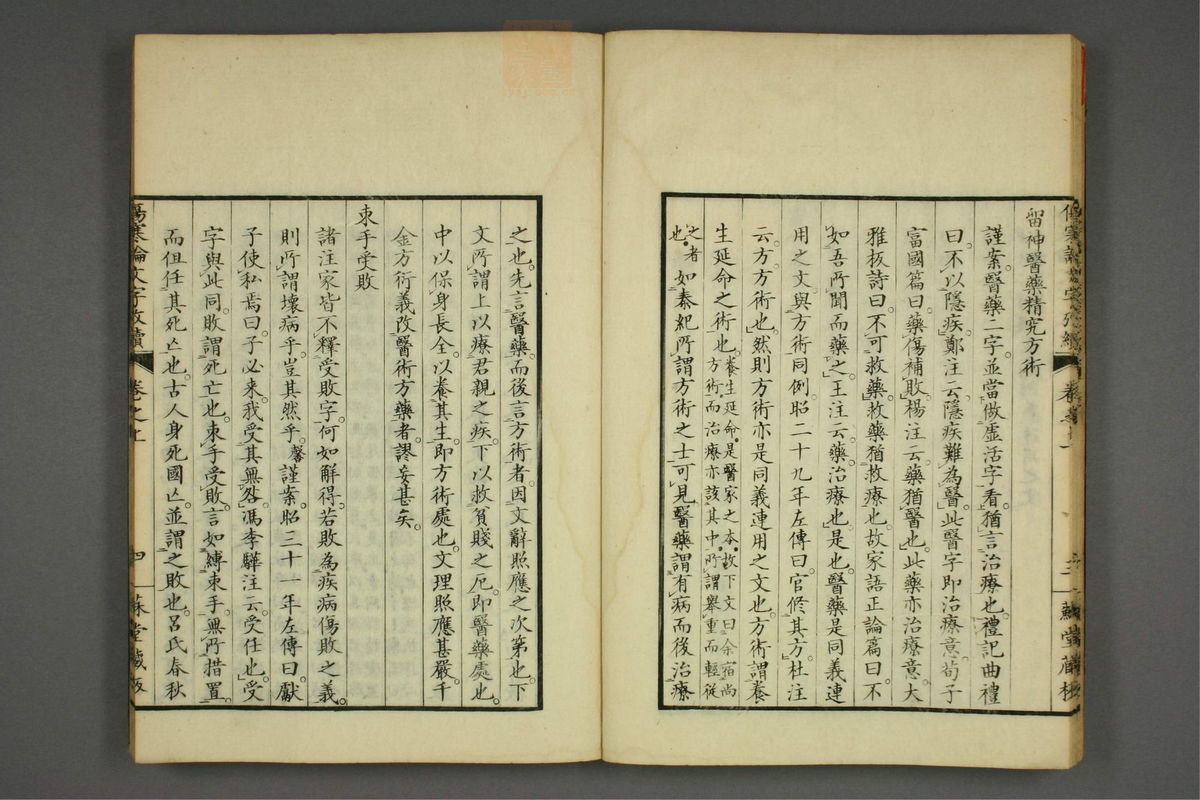 留神醫藥精究方術
謹案醫藥二字並當做虛活字看猶言治療也禮記曲禮
曰不以隱疾鄭注云隱疾難為醫此醫字即治療意荀子
富國篇曰藥傷補敗楊注云藥猶醫也此藥亦治療意大
雅板詩曰不可救藥救藥猶救療也故家語正論篇曰不
如吾所聞而藥之王注云藥治療也是也醫藥是同義連
用之文與方術同例昭二十九年左傳曰官修其方杜注
云方方術也然則方術亦是同義連用之文也方術謂養
生延命之術也養生延命是醫家之本故下文曰余宿尚
方術而治療亦該其中所謂舉重而輕從
之者也如秦紀所謂方術之士可見醫藥謂有病而後治療
之也先言醫藥而後言方術者因文辭照應之次第也下
文所謂上以療君親之疾下以救貧賤之厄即醫藥處也
中以保身長全以養其生即方術處也文理照應甚嚴千
金方衍義改醫術方藥者謬妄甚矣
束手受敗
諸注家皆不釋受敗字何如解得若敗為疾病傷敗之義
則所謂壞病乎豈其然乎馨謹案昭三十一年左傳曰獻
子使私焉曰子必來我受其無咎馮李驊注云受任也受
字與此同敗謂死亡也束手受敗言如縛束手無所措置
而但任其死亾也古人身死國亾並謂之敗也呂氏春秋
傷寒論文字攷續
卷之上
四
蘇堂藏版